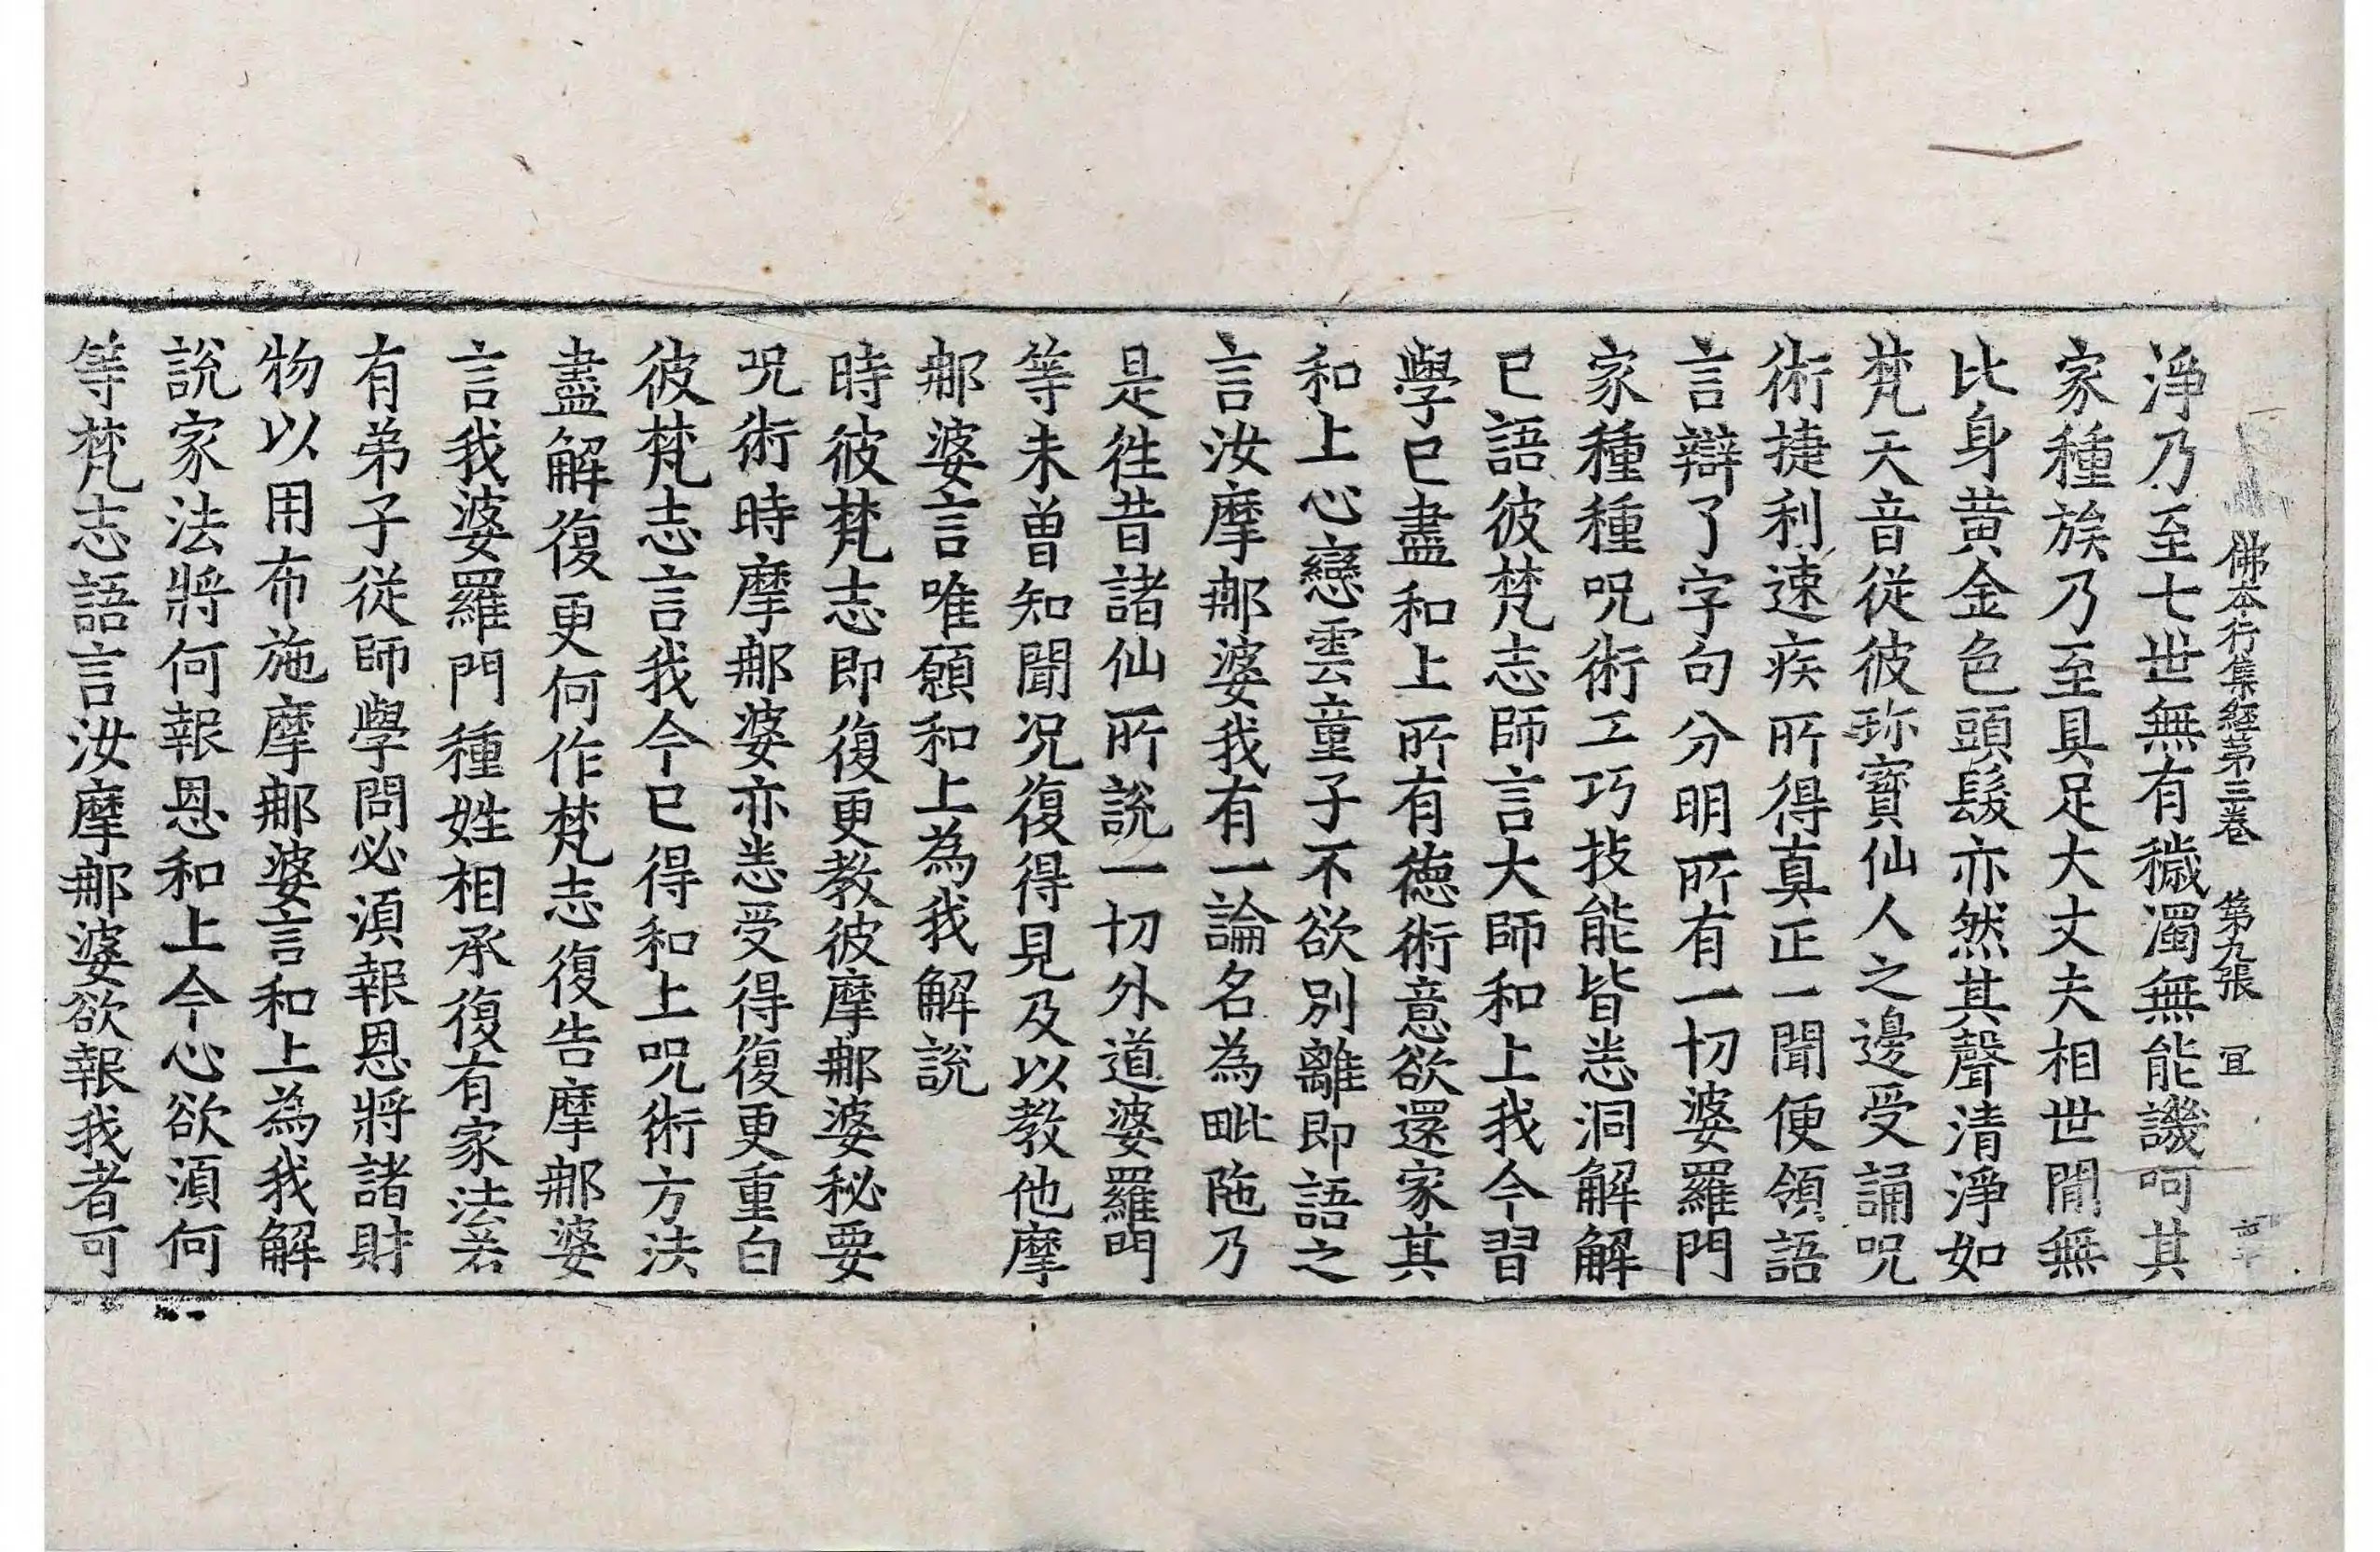 佛本行集經第三卷 第九張 冝
淨乃至七世無有穢濁無能譏呵其
家種族乃至具足大丈夫相世間無
比身黃金色頭髮亦然其聲清淨如
梵天音從彼珎寶仙人之邊受誦呪
術捷利速疾所得真正一聞便領語
言辯了字句分明所有一切婆羅門
家種種呪術工巧技能皆悉洞解解
已語彼梵志師言大師和上我今習
學已盡和上所有德術意欲還家其
和上心戀雲童子不欲別離即語之
言汝摩那婆我有一論名為毗陁乃
是往昔諸仙所說一切外道婆羅門
等未曾知聞況復得見及以教他摩
那婆言唯願和上為我解說
時彼梵志即復更教彼摩那婆秘要
呪術時摩那婆亦悉受得復更重白
彼梵志言我今已得和上呪術方法
盡解復更何作梵志復告摩那婆
言我婆羅門種姓相承復有家法若
有弟子從師學問必須報恩將諸財
物以用布施摩那婆言和上為我解
說家法將何報恩和上今心欲須何
等梵志語言汝摩那婆欲報我者可